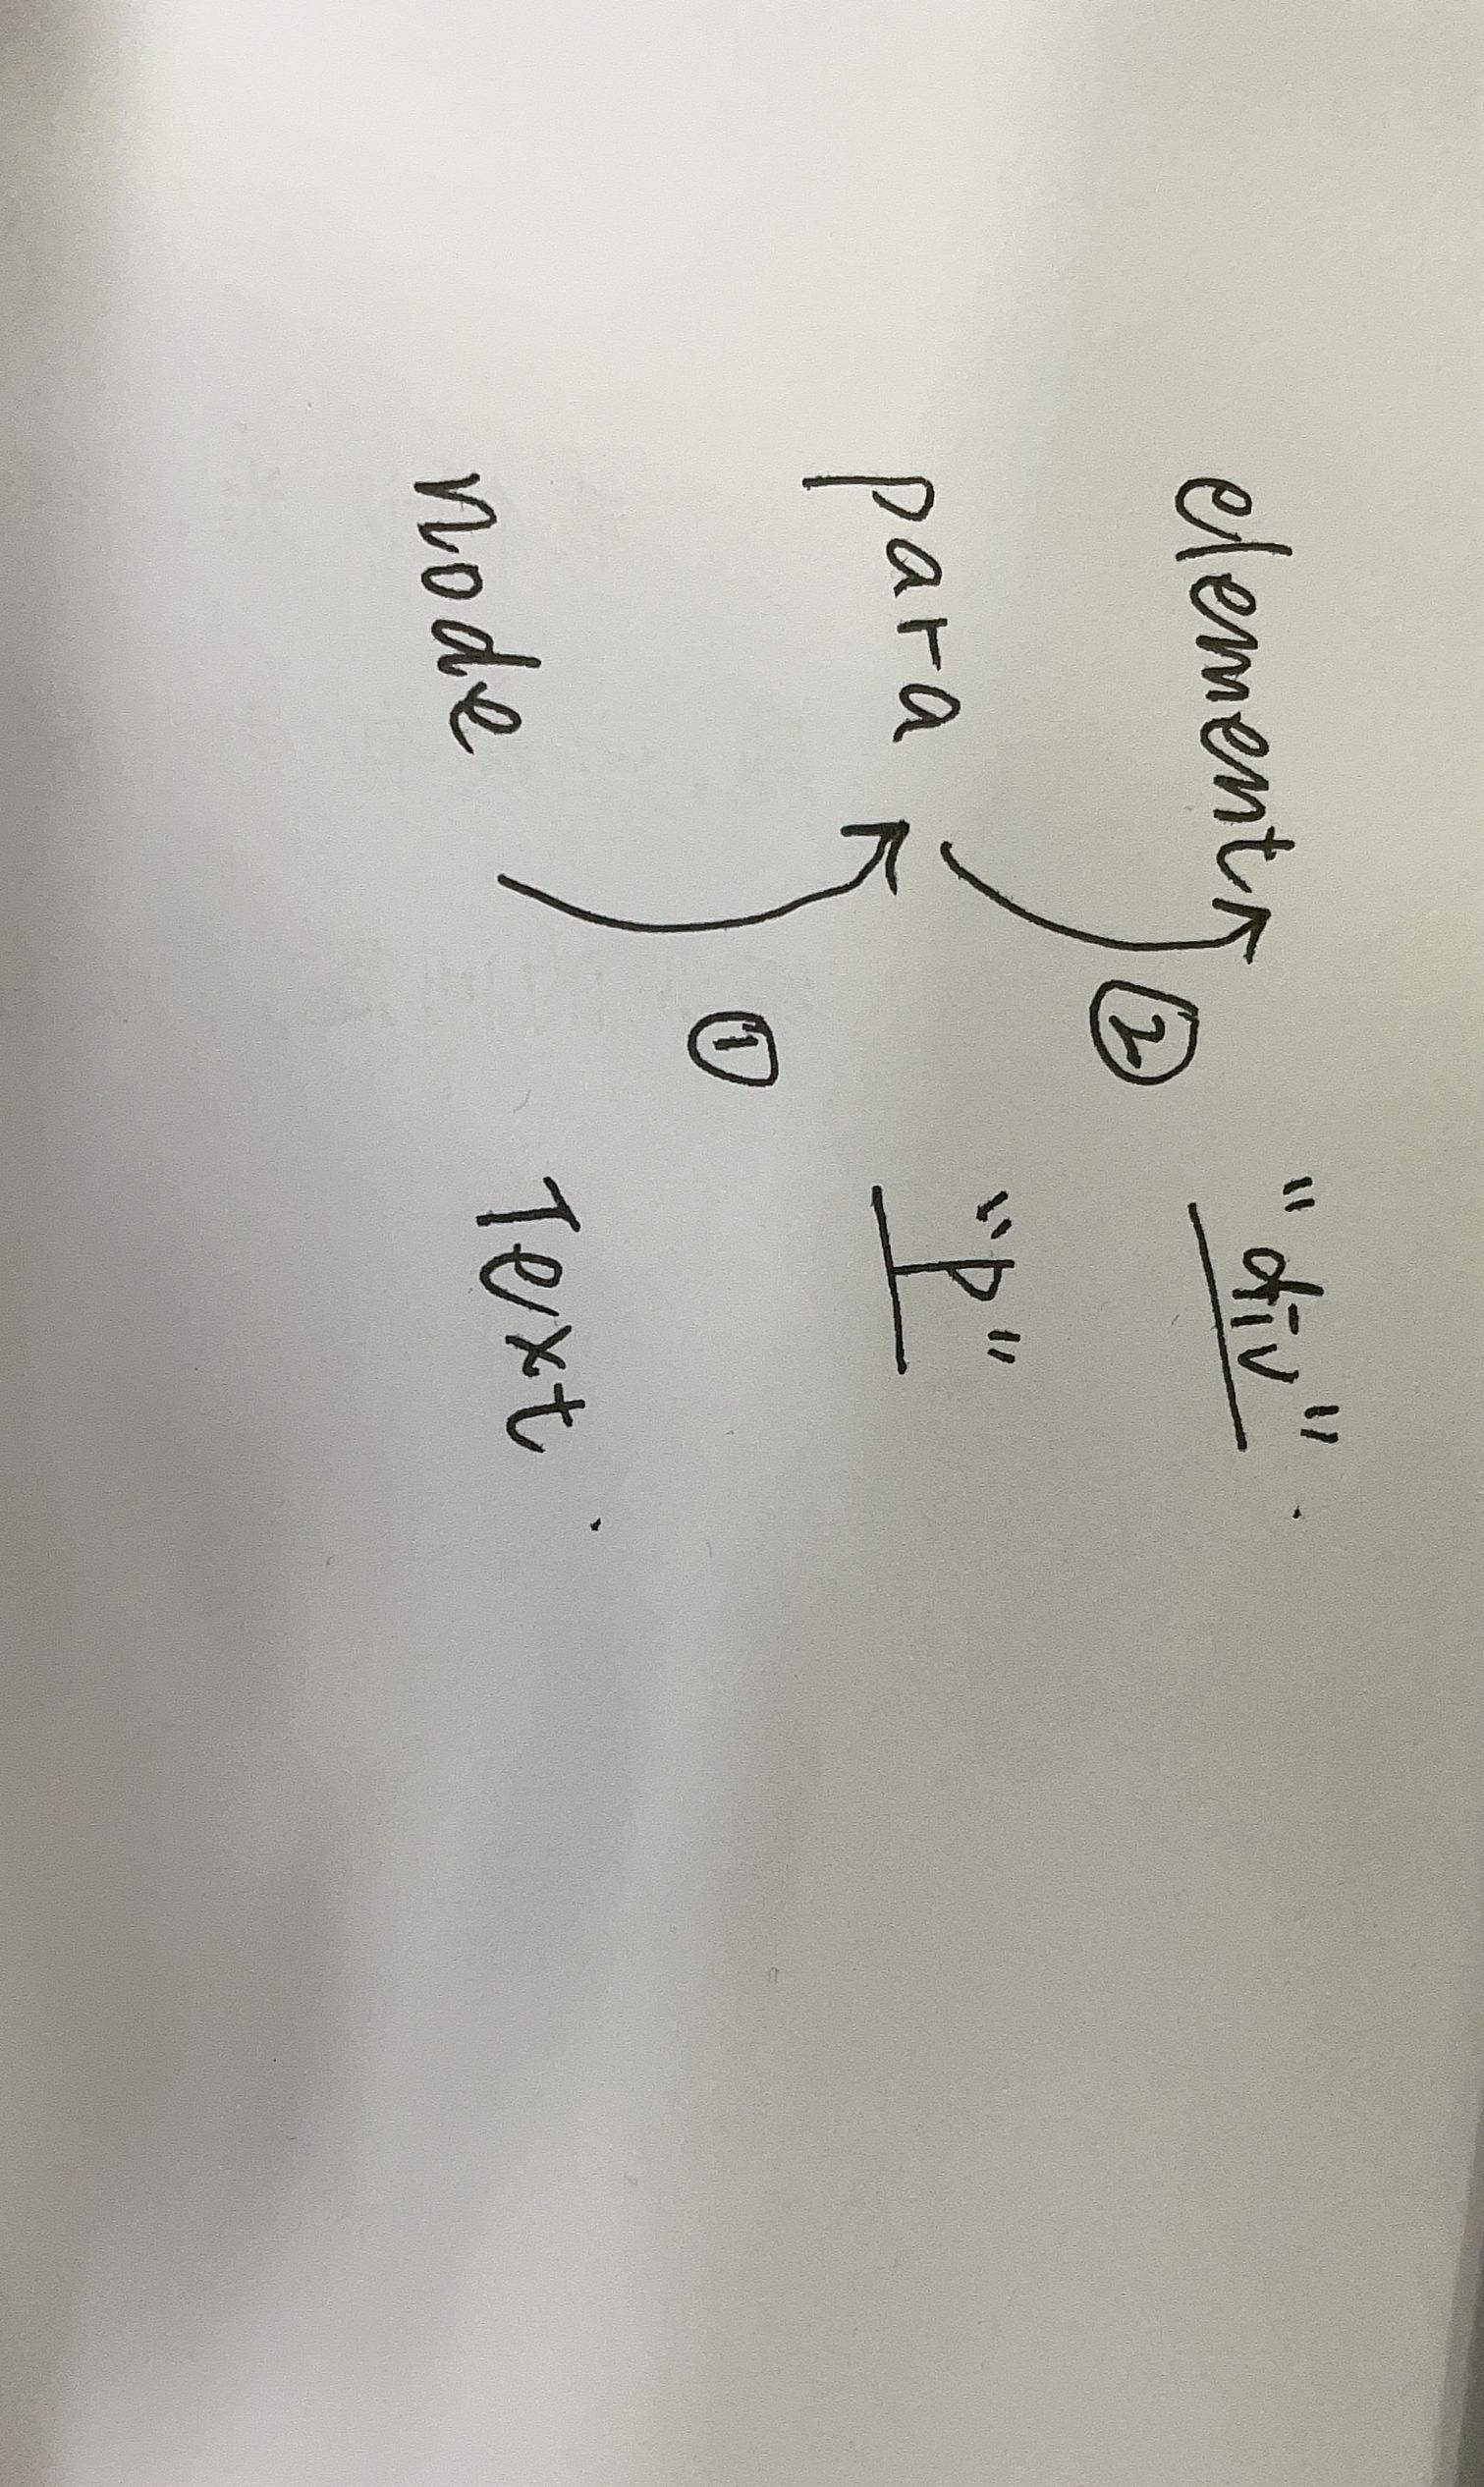 element ② "div".
para ① "p"
node Text.